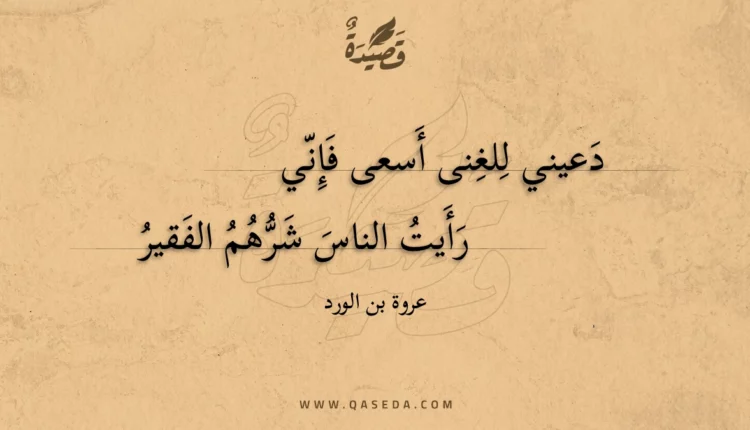 قَصِيْدَةٌ
دَعيني لِلغِنى أَسعى فَإِنّي
رَأَيتُ الناسَ شَرُّهُمُ الفَقيرُ
عروة بن الورد
WWW.QASEDA.COM